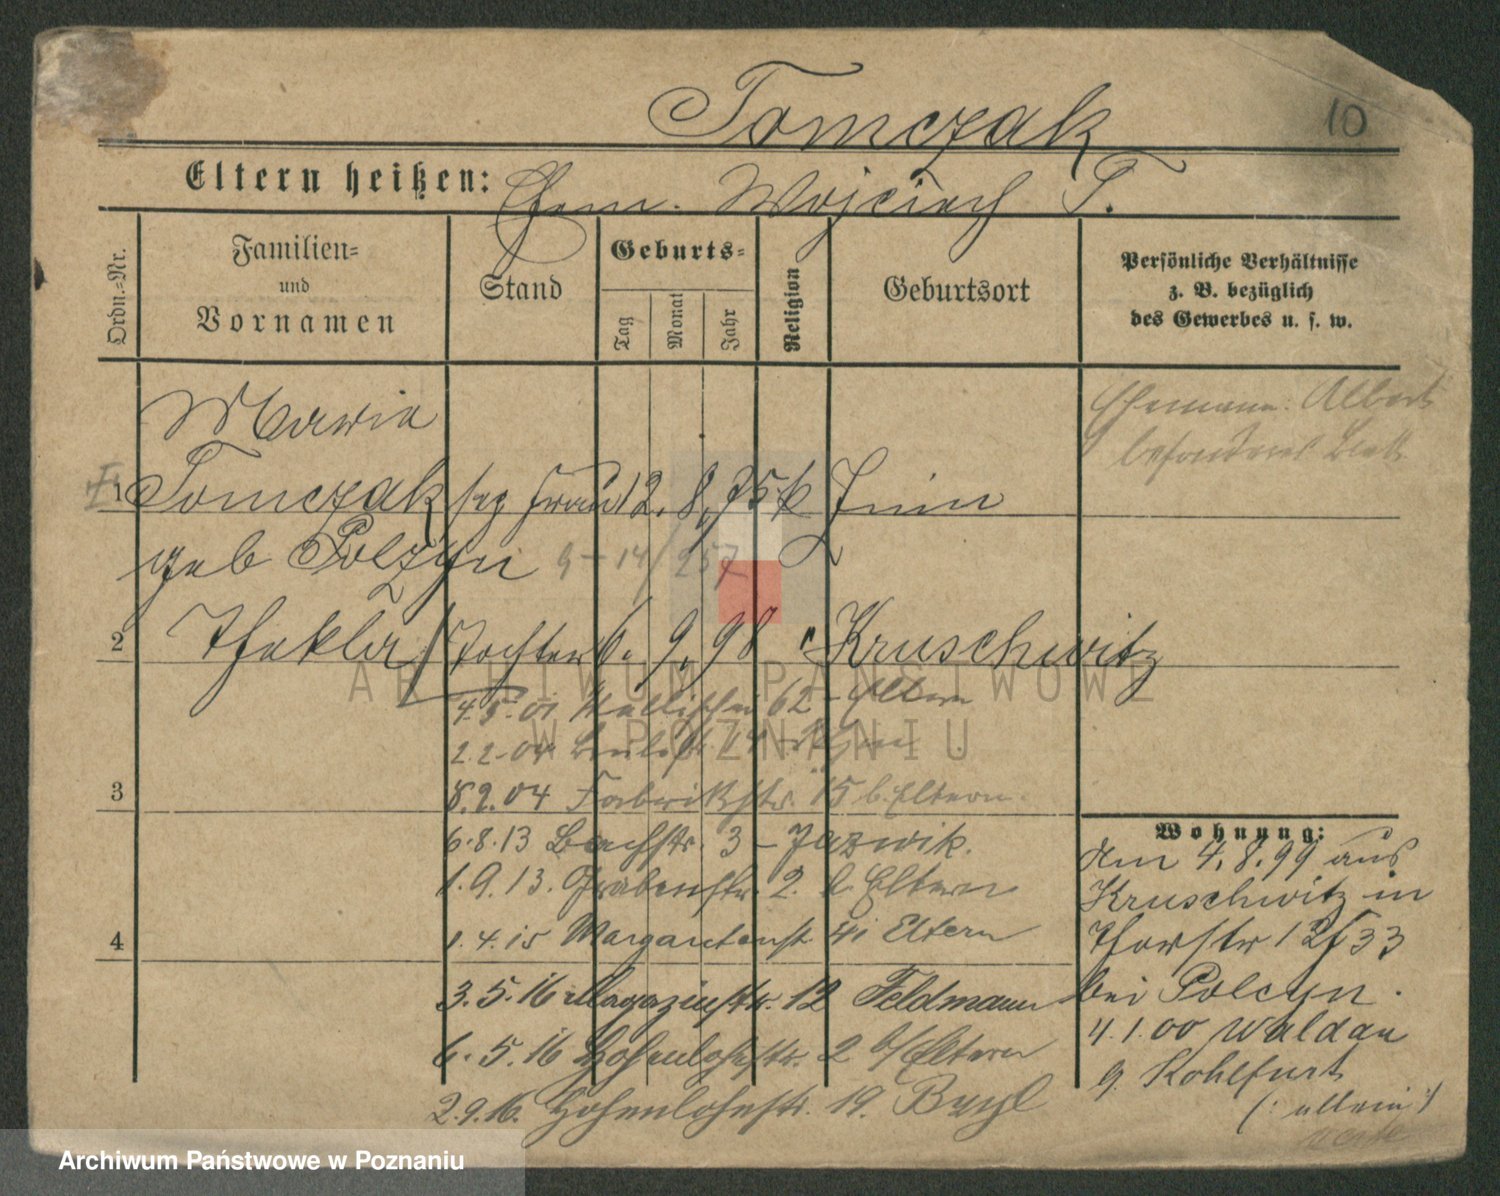 10
Tomczak
Eltern heißen: Ehem. Wojciech T.
Ordn.-Nr.
Familien-
und
Vornamen
Stand
Geburts-
Tag
Monat
Jahr
Religion
Geburtsort
Persönliche Verhältnisse
z. B. bezüglich
des Gewerbes u. s. w.
Maria
Ehemann: Albert
besonderes Blatt
1 Tomczak sep Frau 12. 8. 75 k
geb Polzyn 9-14/257
2 Thekla Tochter 6. 9. 98 Kruschwitz
4.5.01 62 Eltern
2.2.04
3
8.2.04 Fabrikstr. 15 b. Eltern.
6.8.13 Bachstr. 3 -
1.9.13. Grabenstr. 2. b. Eltern
4
1.4.15 Margaretenst. 41 Eltern
3.5.16 Magazinstr. 12 Feldmann
6.5.16 Hohenlohestr. 2 b/Eltern
2.9.16. Hohenlohestr. 19.
Wohnung:
Am 4.8.99 aus
Kruschwitz in
Thorstr 12
bei Polcyn.
4.1.00 Waldau
g. Kohlfurt
(: allein :)
ARCHIWUM PAŃSTWOWE
W POZNANIU
Archiwum Państwowe w Poznaniu